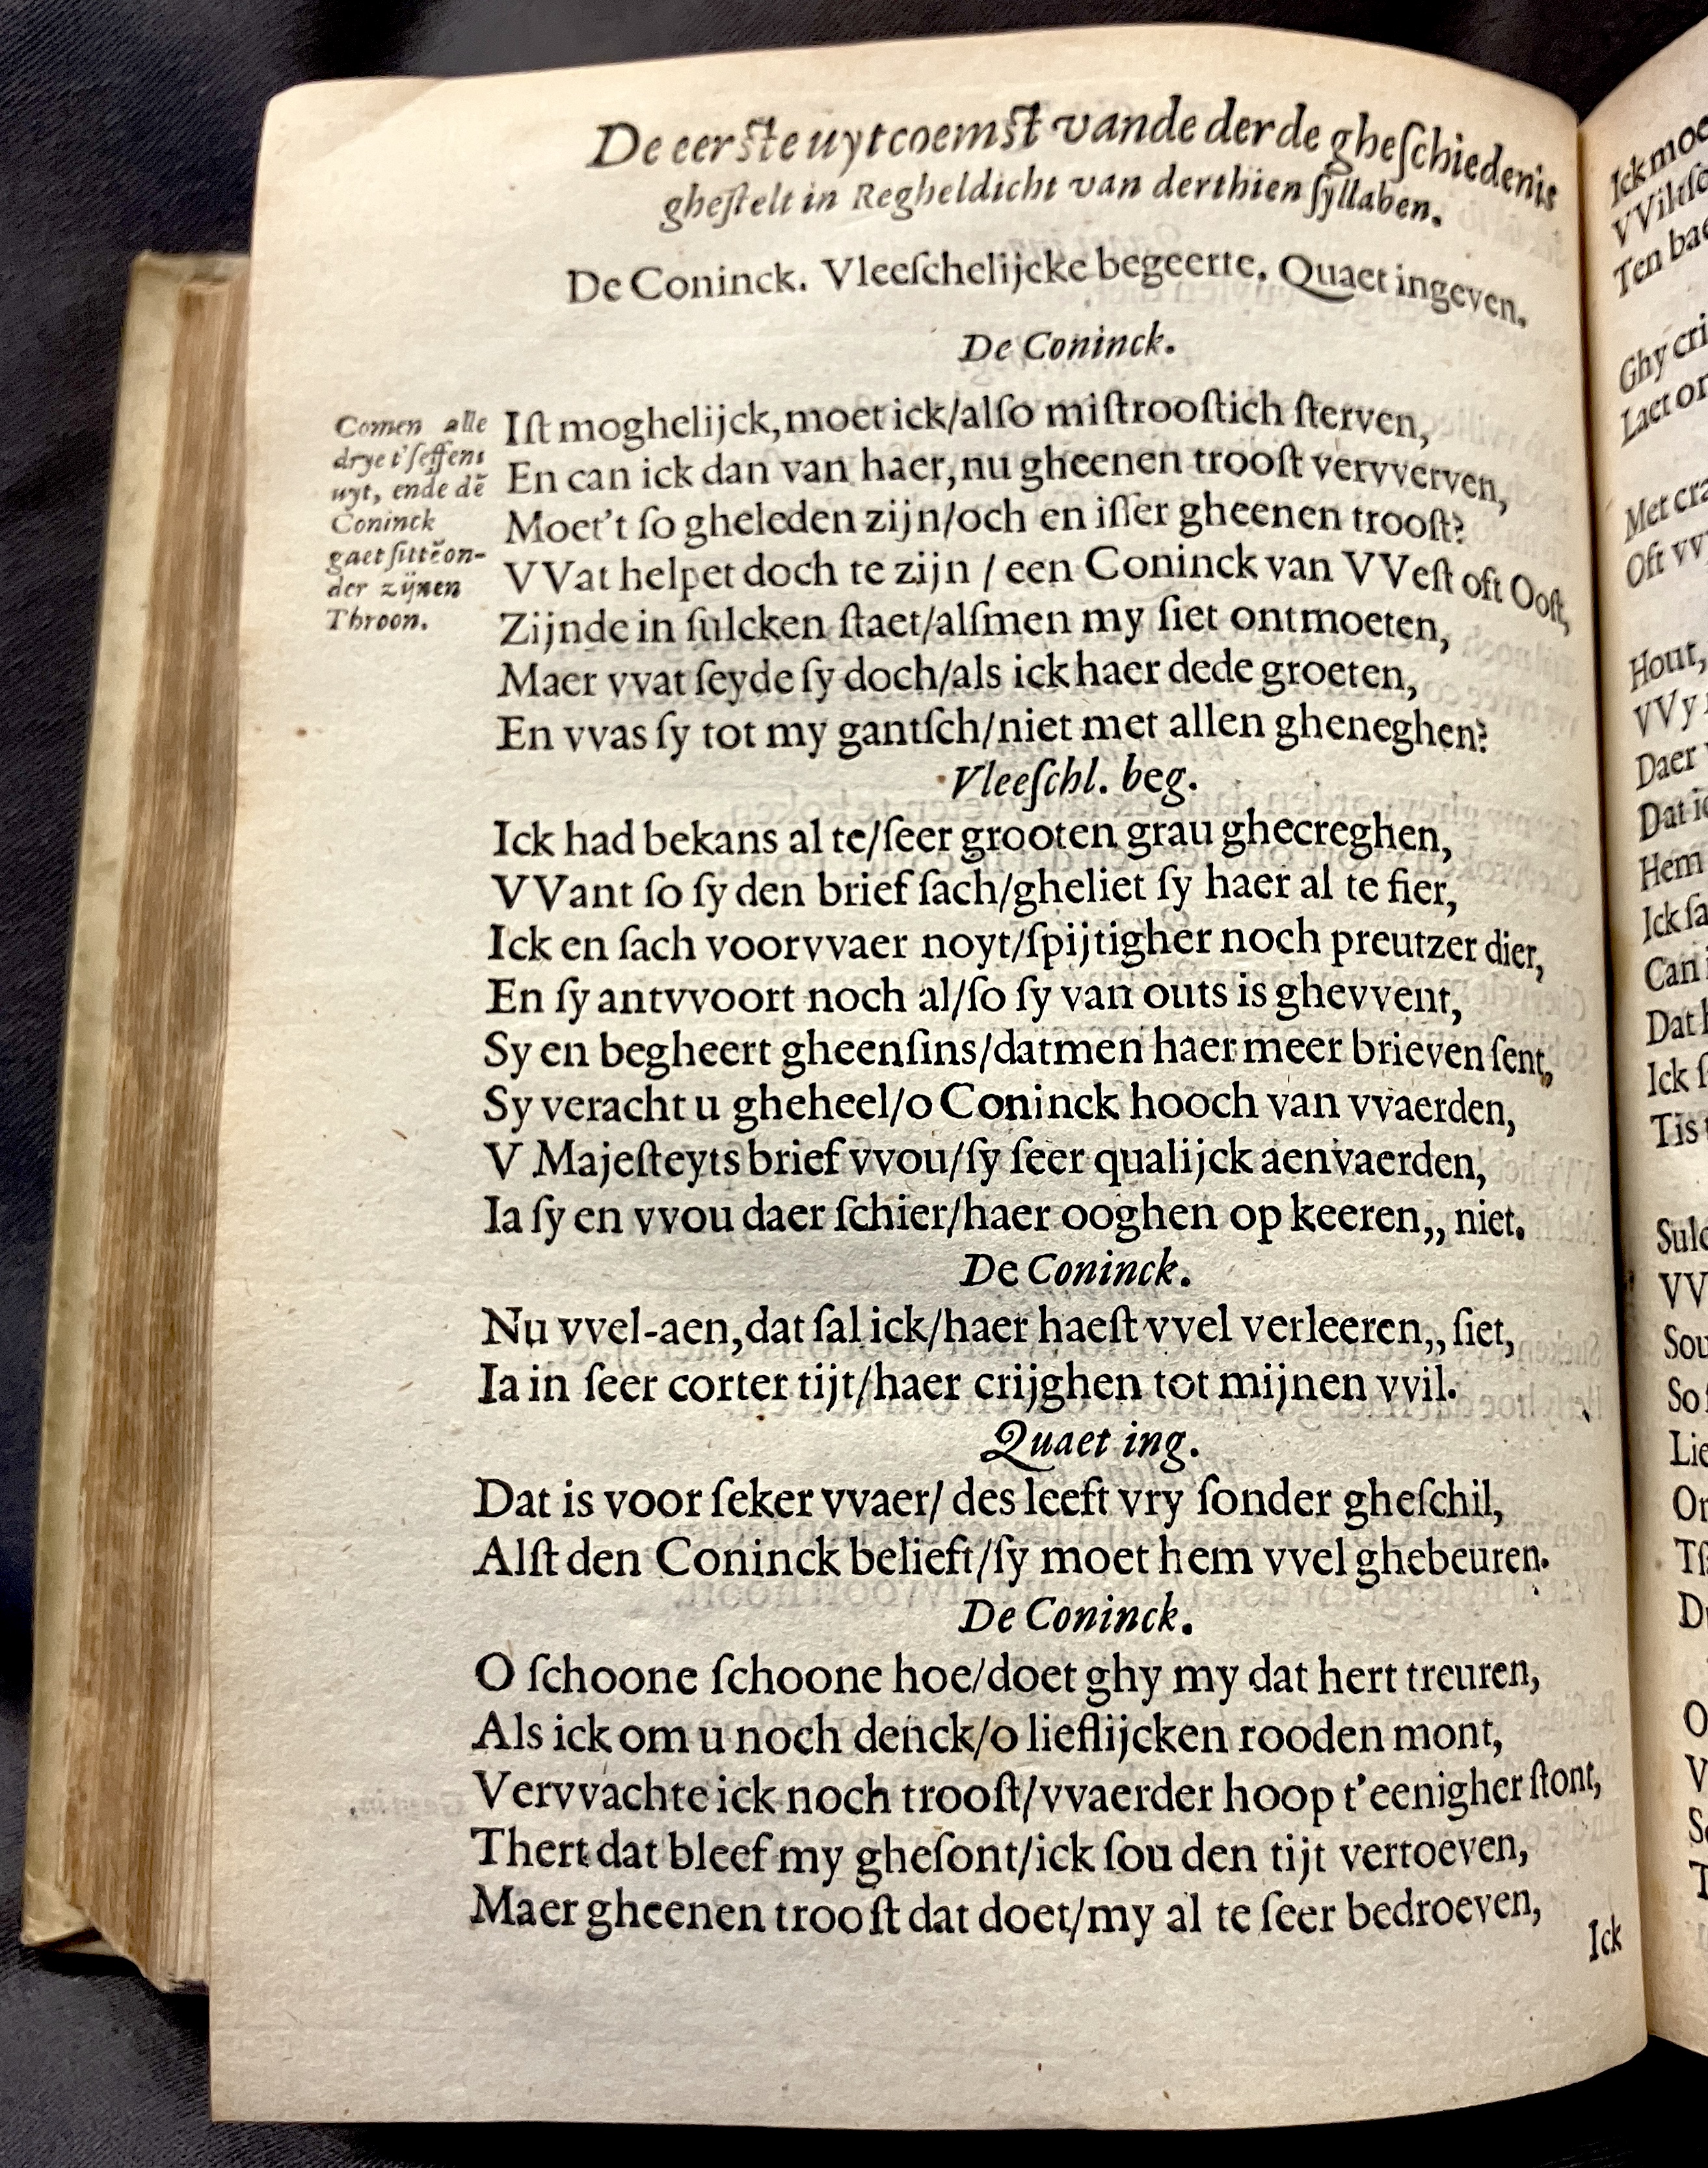 De eerſte uytcoemſt vande derde gheſchiedenis
gheſtelt in Regheldicht van derthien ſyllaben.
De Coninck. Vleeſchelijcke begeerte. Quaet ingeven.
De Coninck.
Comen alle
drye t'ſeffens
uyt, ende dē
Coninck
gaet ſittē on-
der zijnen
Throon.
Iſt moghelijck, moet ick/alſo miſtrooſtich ſterven,
En can ick dan van haer, nu gheenen trooſt vervverven,
Moet't ſo gheleden zijn/och en iſſer gheenen trooſt?
VVat helpet doch te zijn / een Coninck van VVeſt oft Ooſt,
Zijnde in ſulcken ſtaet/alſmen my ſiet ontmoeten,
Maer vvat ſeyde ſy doch/als ick haer dede groeten,
En vvas ſy tot my gantſch/niet met allen gheneghen?
Vleeſchl. beg.
Ick had bekans al te/ſeer grooten grau ghecreghen,
VVant ſo ſy den brief ſach/gheliet ſy haer al te fier,
Ick en ſach voorvvaer noyt/ſpijtigher noch preutzer dier,
En ſy antvvoort noch al/ſo ſy van outs is ghevvent,
Sy en begheert gheenſins/datmen haer meer brieven ſent,
Sy veracht u gheheel/o Coninck hooch van vvaerden,
V Majeſteyts brief vvou/ſy ſeer qualijck aenvaerden,
Ia ſy en vvou daer ſchier/haer ooghen op keeren,, niet.
De Coninck.
Nu vvel-aen, dat ſal ick/haer haeſt vvel verleeren,, ſiet,
Ia in ſeer corter tijt/haer crijghen tot mijnen vvil.
Quaet ing.
Dat is voor ſeker vvaer/ des leeft vry ſonder gheſchil,
Alſt den Coninck belieft/ſy moet hem vvel ghebeuren.
De Coninck.
O ſchoone ſchoone hoe/doet ghy my dat hert treuren,
Als ick om u noch denck/o lieflijcken rooden mont,
Vervvachte ick noch trooſt/vvaerder hoop t'eenigher ſtont,
Thert dat bleef my gheſont/ick ſou den tijt vertoeven,
Maer gheenen trooſt dat doet/my al te ſeer bedroeven,
Ick
Ick moe
VVilt ſo
Ten bae
Ghy cri
Laet on
Met cra
Oft vv
Hout,
VVy
Daer
Dat ic
Hem
Ick ſa
Can
Dat
Ick ſ
Tis
Sulc
VV
Sou
So
Lie
On